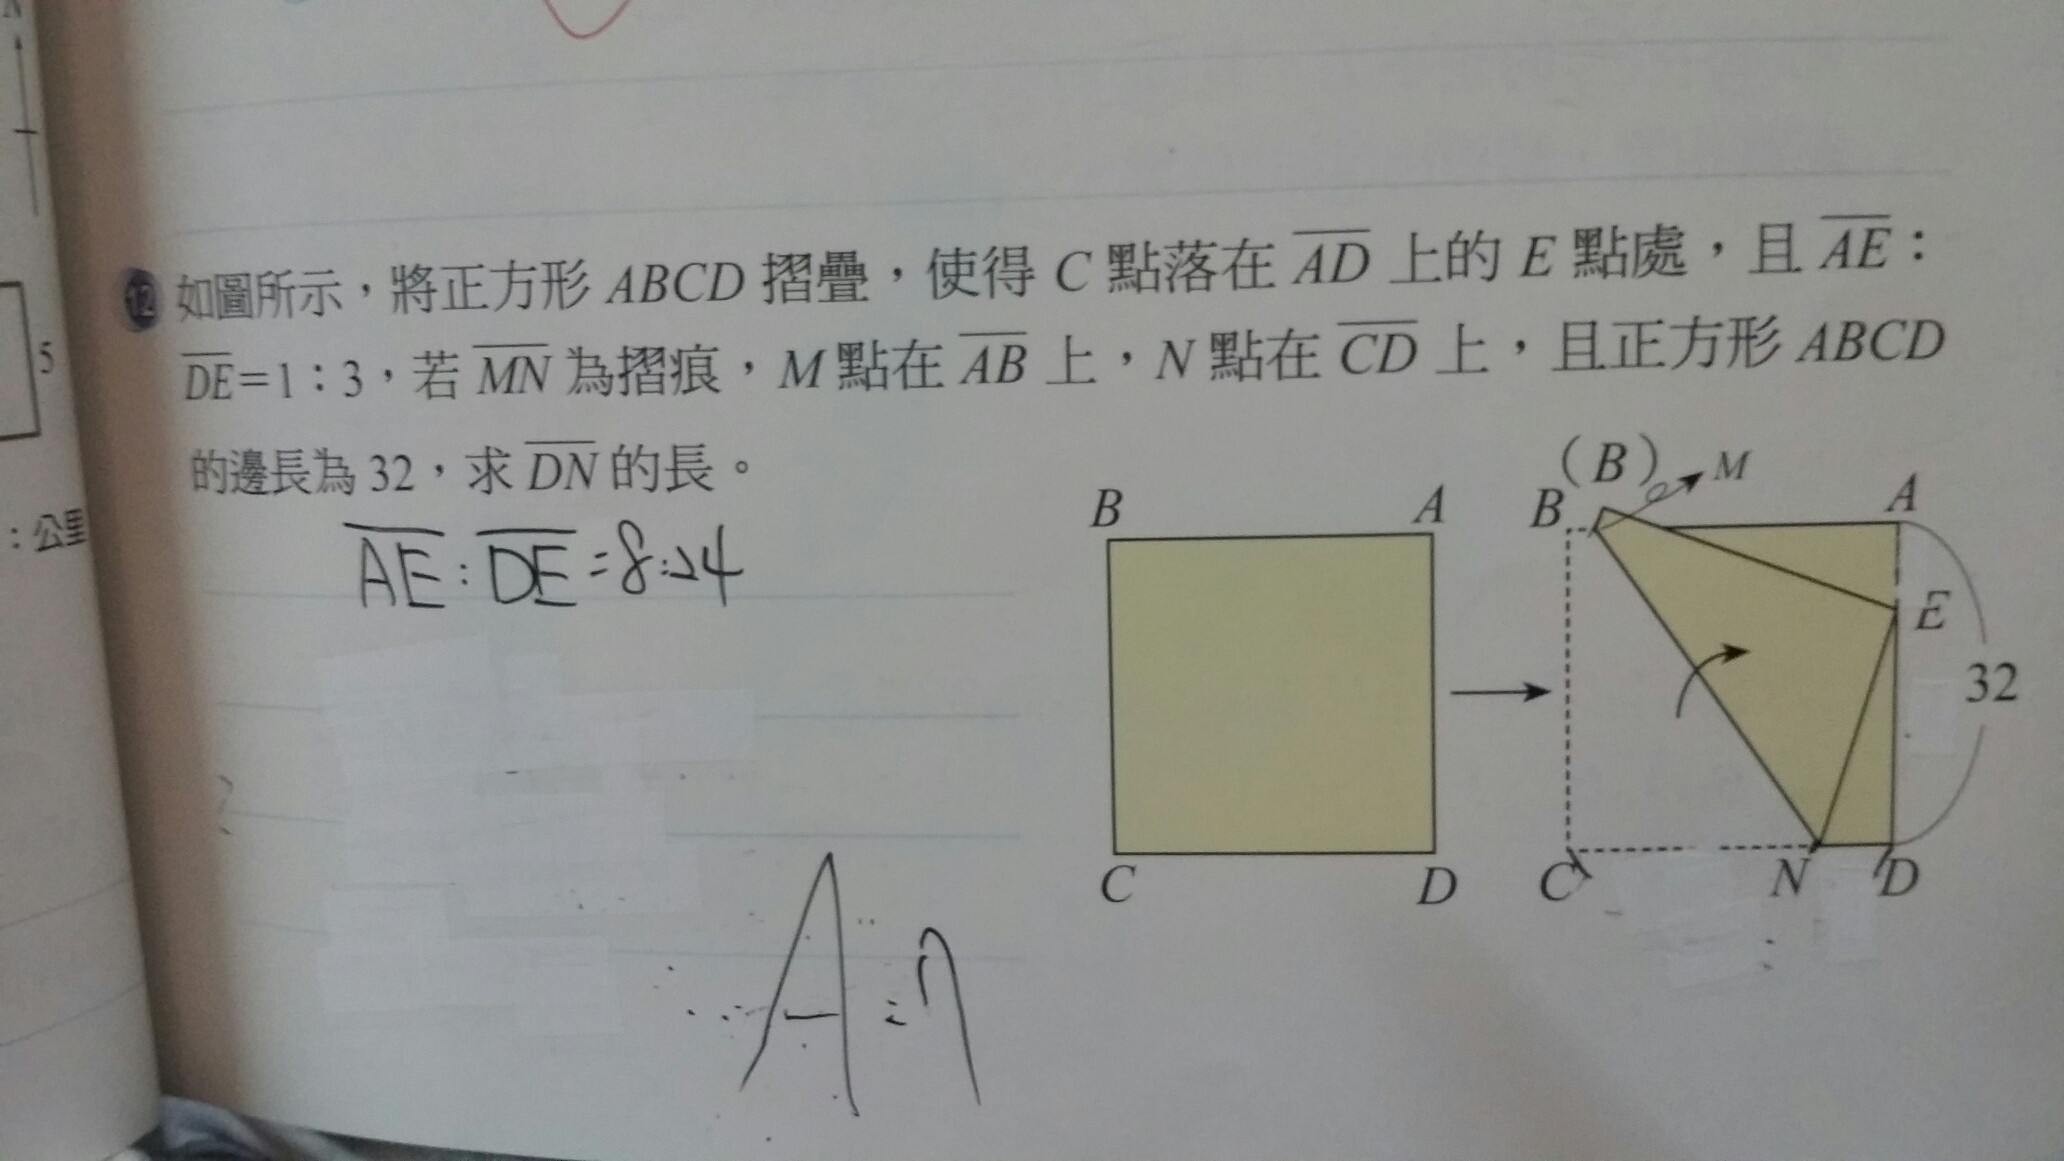 N
5
：公里
12 如圖所示，將正方形 ABCD 摺疊，使得 C 點落在 AD 上的 E 點處，且 AE：
DE=1：3，若 MN 為摺痕，M 點在 AB 上，N 點在 CD 上，且正方形 ABCD
的邊長為 32，求 DN 的長。
AE:DE=8:24
B A
C D
(B) M
B A
E
32
C N D
A=7